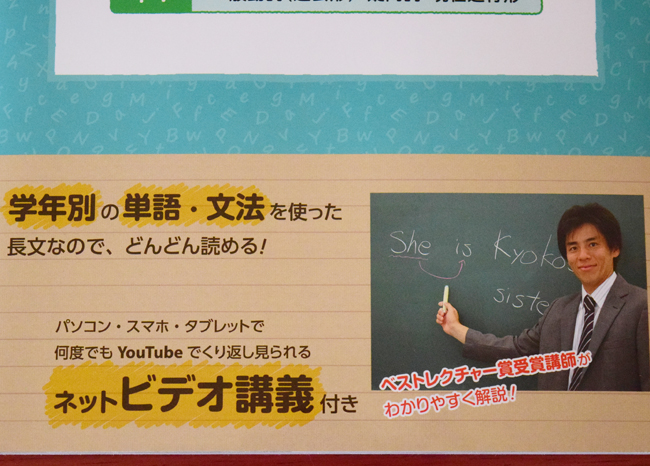 学年別の単語・文法を使った
長文なので、どんどん読める!
パソコン・スマホ・タブレットで
何度でも YouTube でくり返し見られる
ネットビデオ講義付き
She is Kyoko
siste
ベストレクチャー賞受賞講師が
わかりやすく解説!